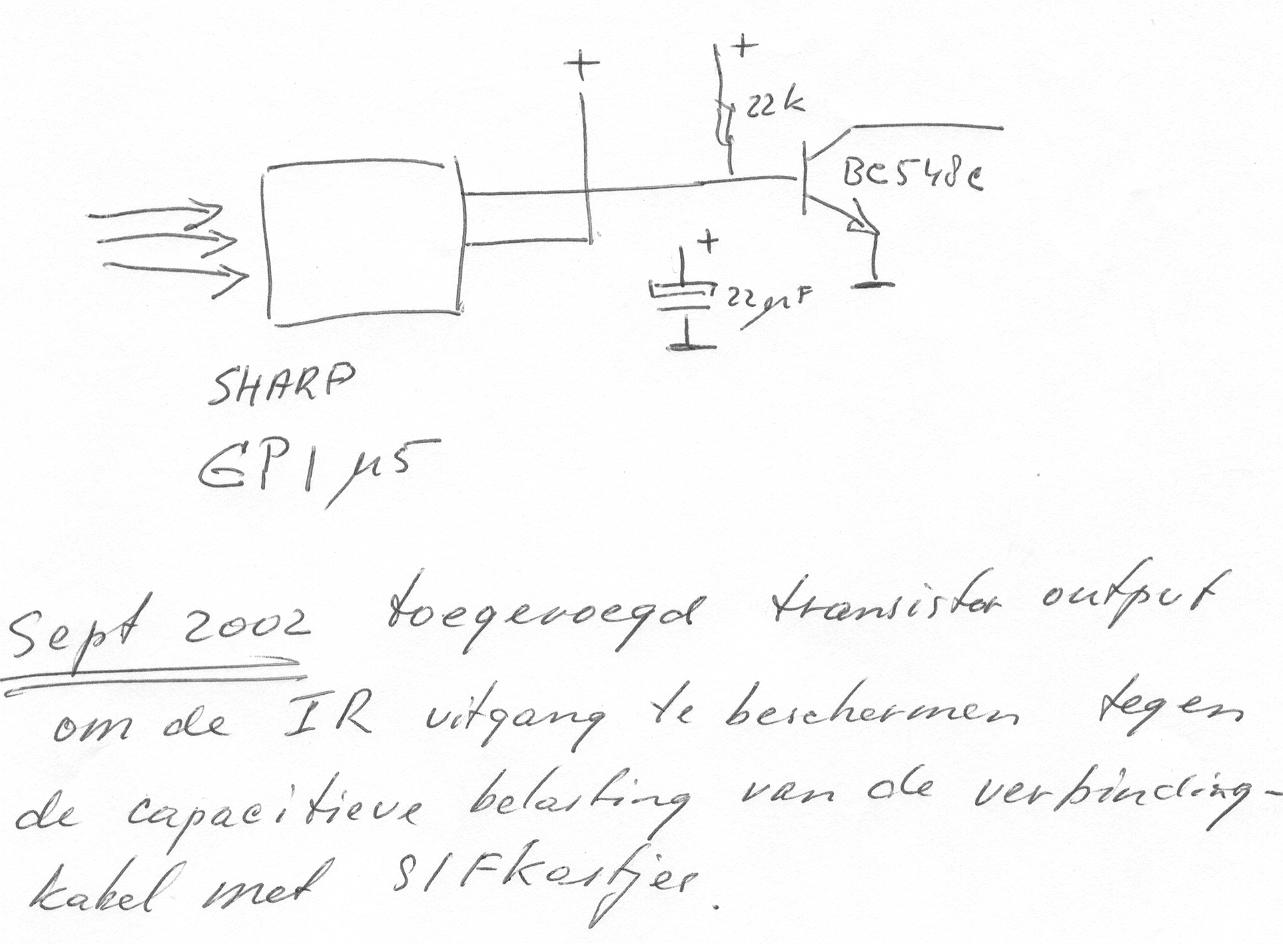 +
+
22k
BC548c
+
22µF
SHARP
GP1µ5
Sept 2002 toegevoegd transistor output
om de IR uitgang te beschermen tegen
de capacitieve belasting van de verbinding-
kabel met S/Fkastjes.